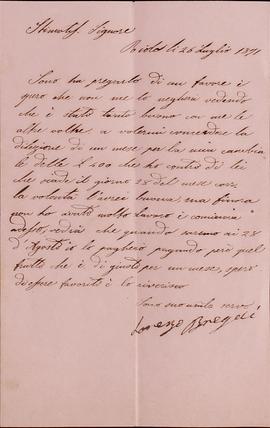 Stimatiss. Signore
li 26 Luglio 1891
Sono ha pregarlo di un favore è
spero che non me lo negherà vedendo
che è stato tanto buono con me le
altre volte, a volermi concedere la
dilazione di un mese per la mia cambiale
delle £ 200 che ho contro di lei
che scade il giorno 28 del mese corr.
la volontà l'avrei buona, ma finora
non ho avuto molto lavoro è comincia
adesso, vedrà che quando saremo ai 28
d'Agosto io la pagherò pagando però quel
frutto che è di giusto per un mese, spero
di essere favorito è lo riverisco
Sono suo umile servo
Lorenzo